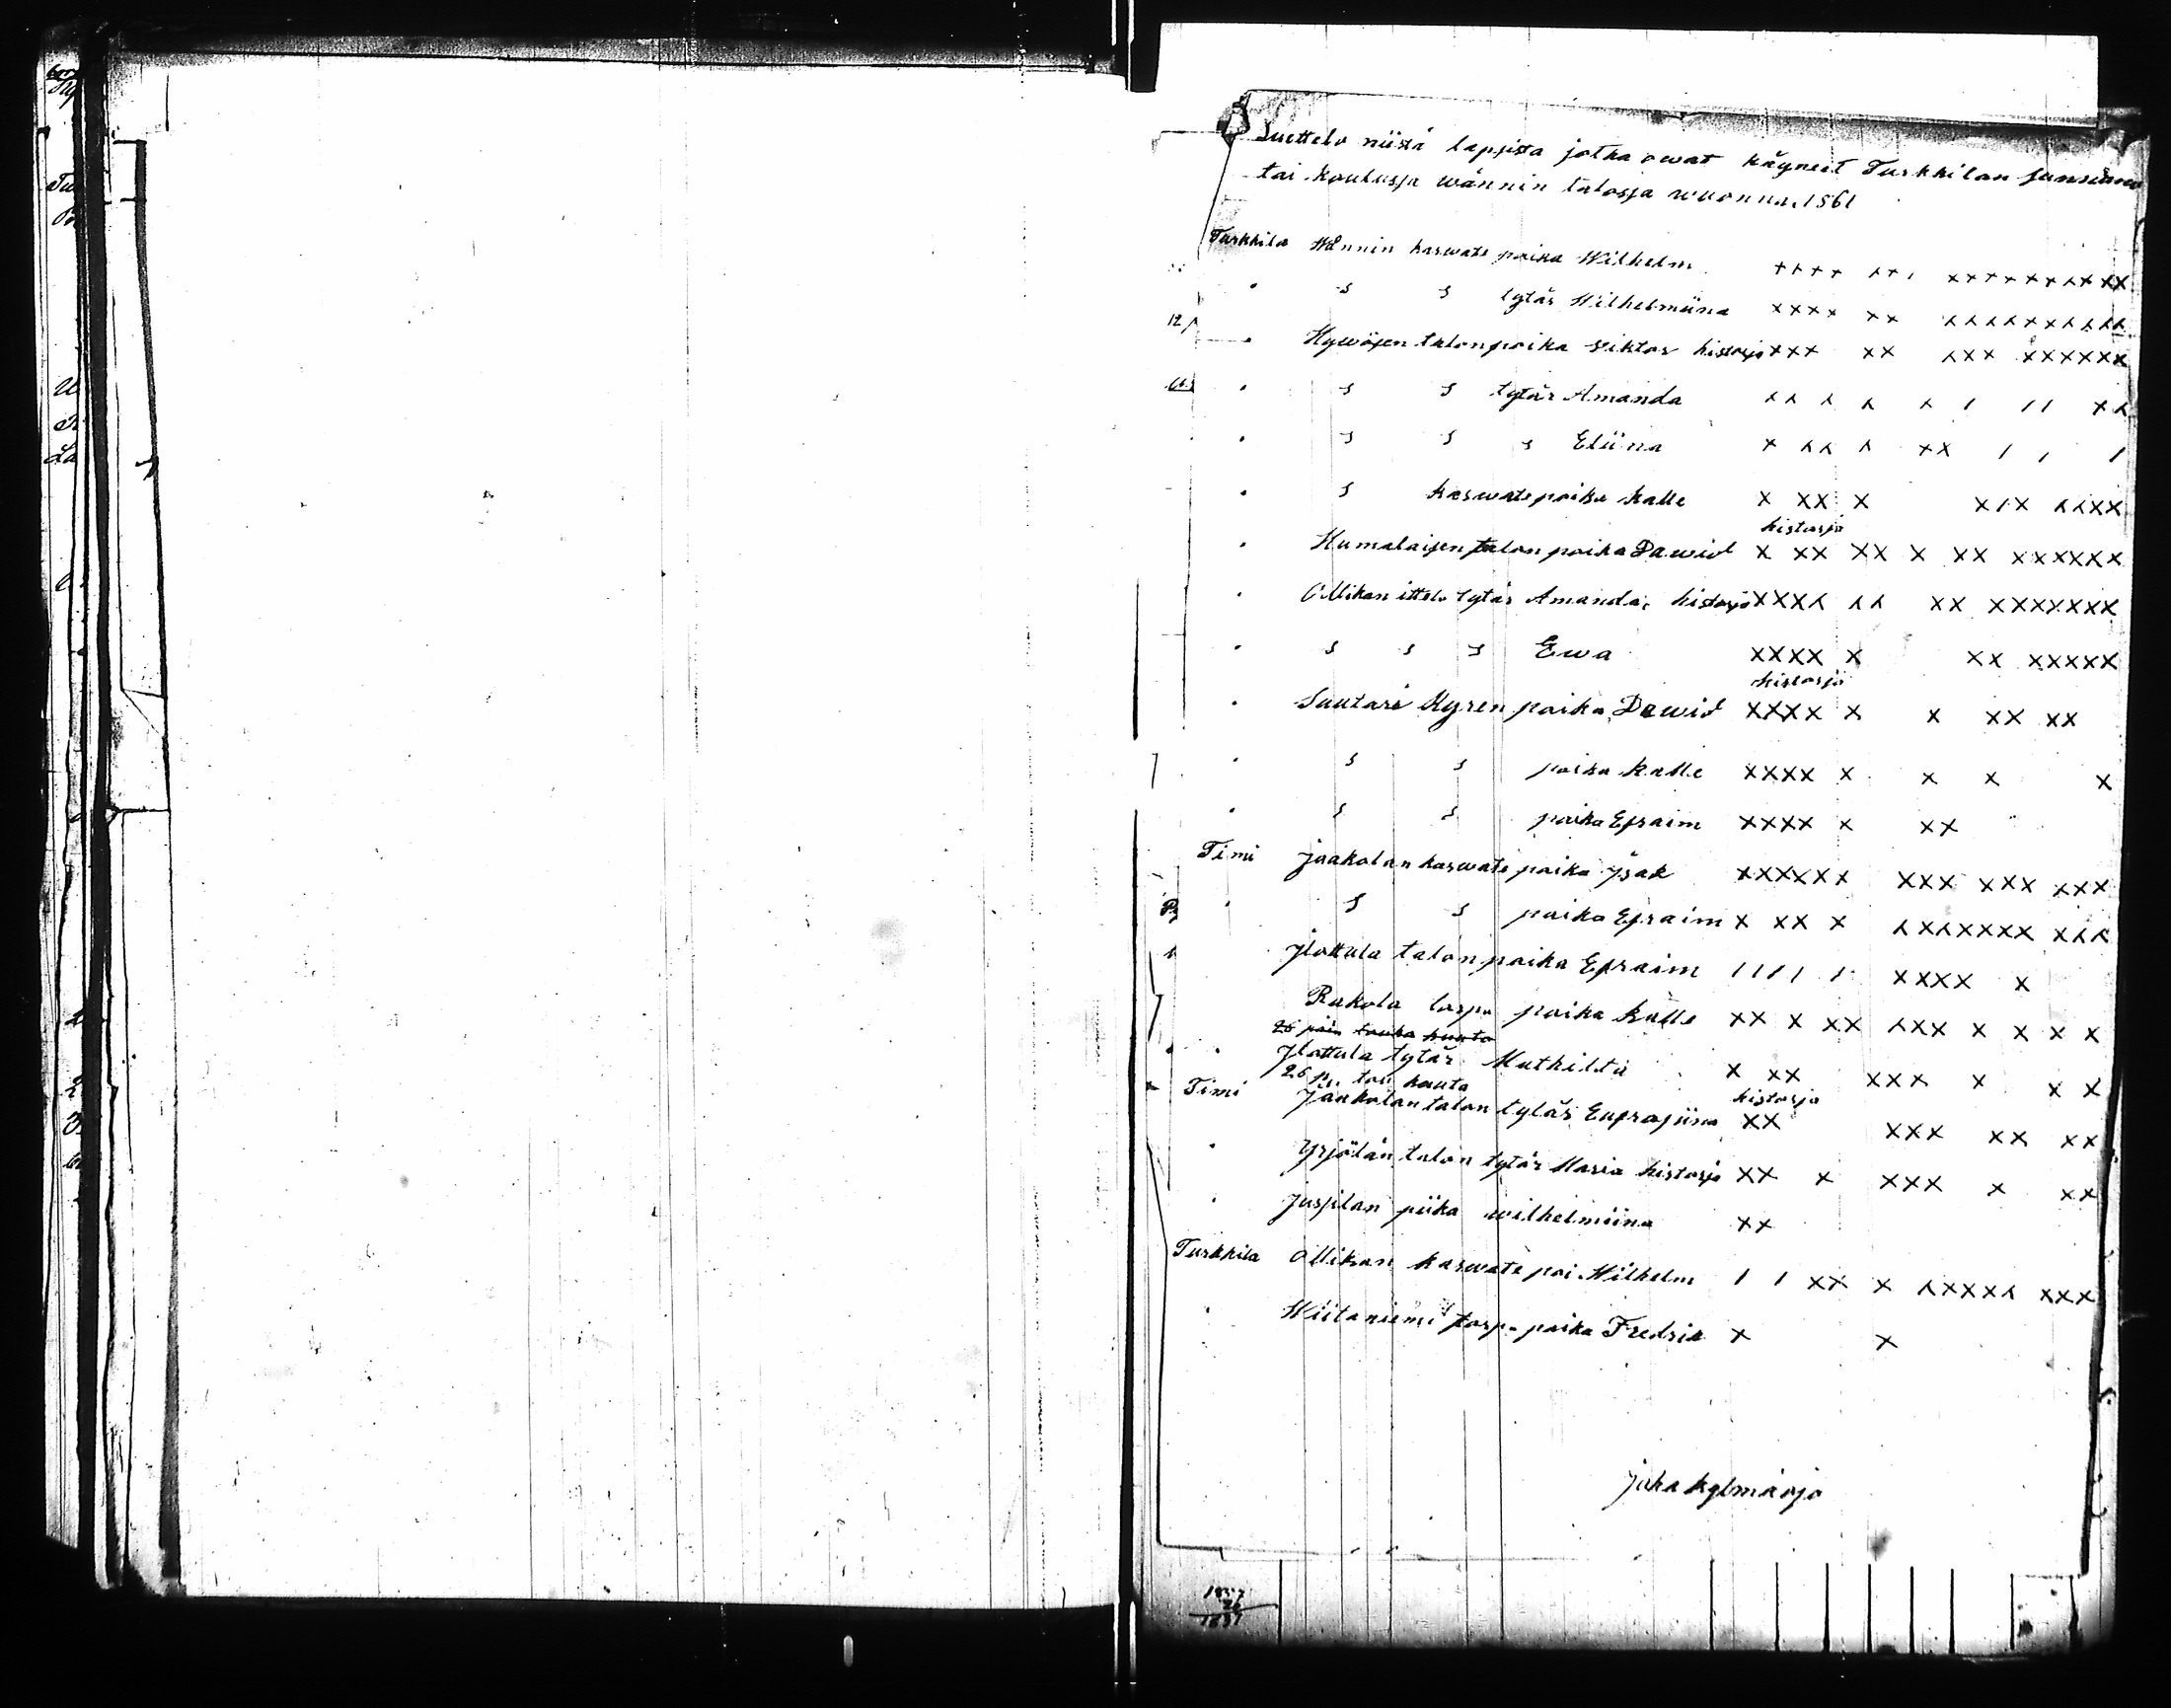 Luettelo niistä lapsista jotka owat käyneet Turkkilan sunnunn
tai koulussa wännin talossa wuonna 1861
Turkkila Wännin kaswate poika Wilhelm ++++ +++ xxxxxxxxxx
" s s tytär Wilhelmiina xxxx xx xxxxxxxxxx
" Hywösen talon poika Viktor historja xxx xx xxx xxxxxx
" s s tytär Amanda xx x x x / // xx
" s s s Eliina x xx x xx / / /
" s kaswate poika Kalle x xx x x/x xxxx
historja
" Humalaisen talon poika Dawid x xx xx x xx xxxxxx
" Ollikan ittelo tytär Amanda, historja xxxx xx xx xxxxxxx
" s s s Ewa xxxx x xx xxxxx
historja
" Suutari Kyren poika Dawid xxxx x x xx xx
" s s poika Kalle xxxx x x x x
" s s poika Efraim xxxx x xx
Timi Jaakolan kaswate poika Jsak xxxxxx xxx xxx xxx
" s s poika Efraim x xx x xxxxxxx xxx
Jlottula talon poika Efraim //// / xxxx x
Rukola torpa poika Kalle xx x xx xxx x x x x
26 päi touko kuuta
" Jlottula tytär Mathilda x xx xxx x x x
26 p. tou kuuta historja
Timi Jaakolan talon tytär Eufrosiina xx xxx xx xx
" Yrjölän talon tytär Maria historja xx x xxx x xx
" Jussilan piika wilhelmiina xx
Turkkila Ollikan kaswate poi Wilhelm / / xx x xxxxx xxx
" Wiitaniemi torp. poika Fredrik x x
Juha Kylmäoja